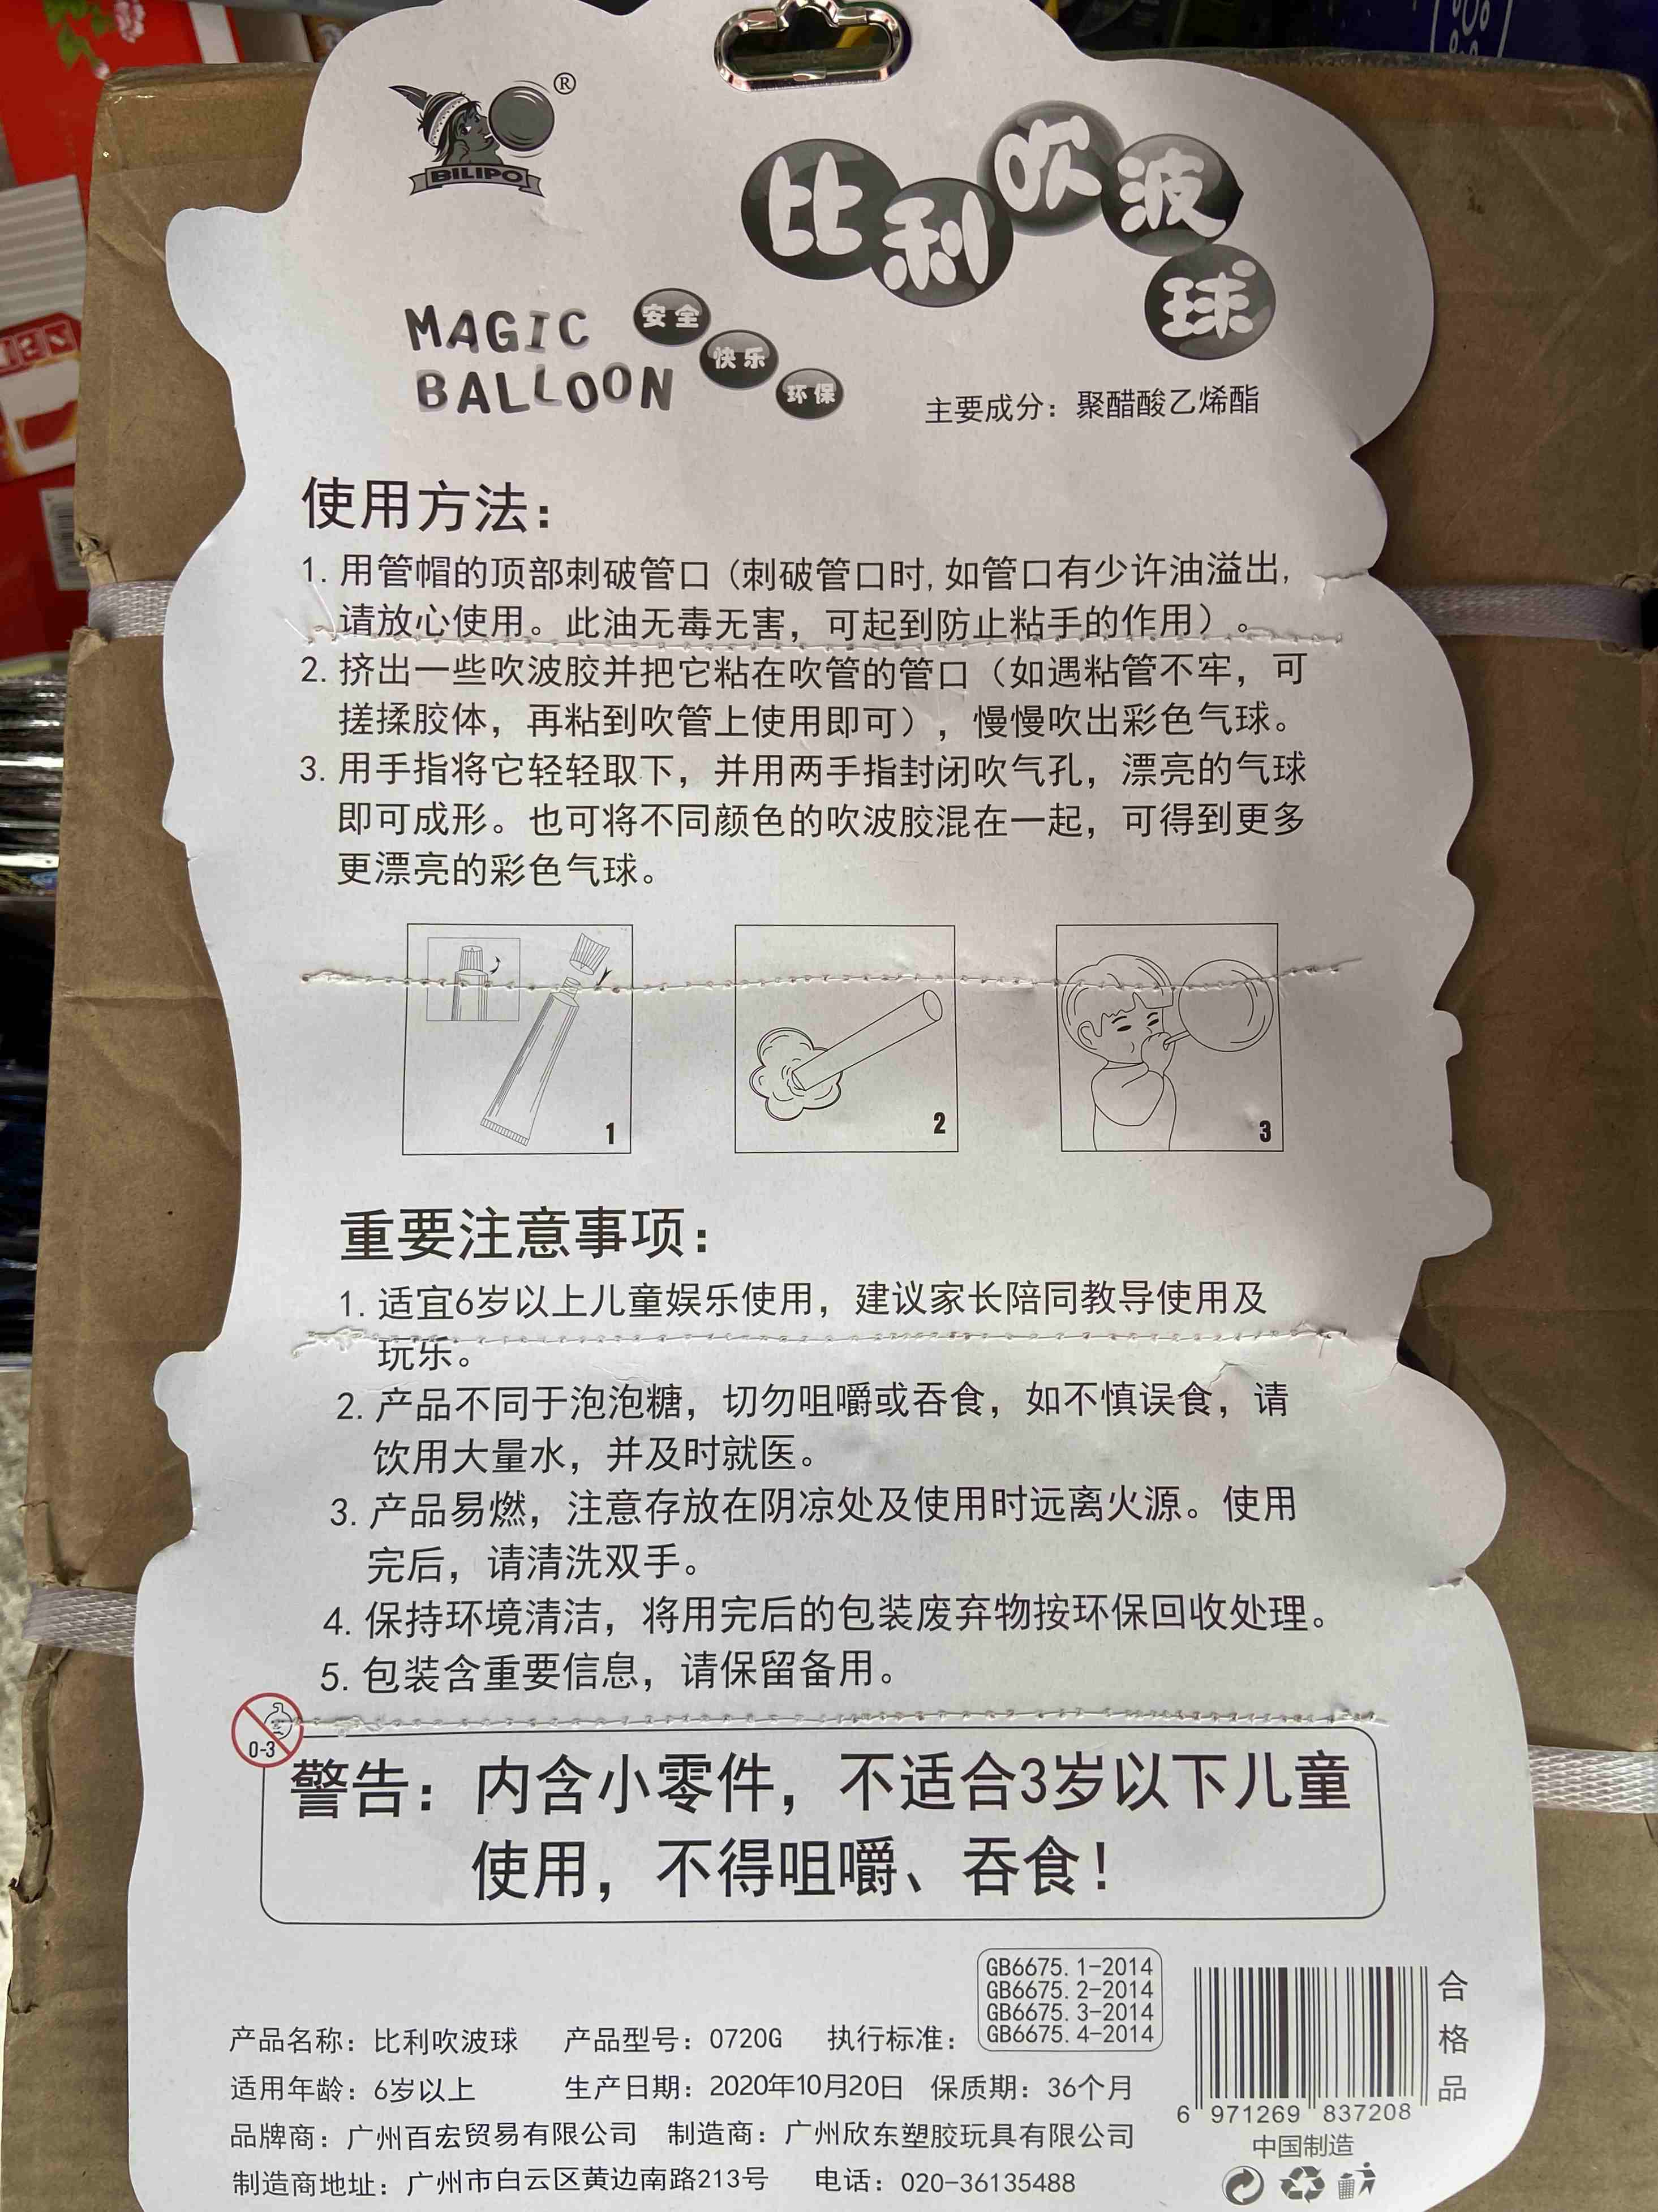 ®
BILIPO
比利吹波球
MAGIC
BALLOON
安全
快乐
环保
主要成分：聚醋酸乙烯酯
使用方法：
1. 用管帽的顶部刺破管口（刺破管口时, 如管口有少许油溢出,
请放心使用。此油无毒无害，可起到防止粘手的作用）。
2. 挤出一些吹波胶并把它粘在吹管的管口（如遇粘管不牢，可
搓揉胶体，再粘到吹管上使用即可），慢慢吹出彩色气球。
3. 用手指将它轻轻取下，并用两手指封闭吹气孔，漂亮的气球
即可成形。也可将不同颜色的吹波胶混在一起，可得到更多
更漂亮的彩色气球。
1
2
3
重要注意事项：
1. 适宜6岁以上儿童娱乐使用，建议家长陪同教导使用及
玩乐。
2. 产品不同于泡泡糖，切勿咀嚼或吞食，如不慎误食，请
饮用大量水，并及时就医。
3. 产品易燃，注意存放在阴凉处及使用时远离火源。使用
完后，请清洗双手。
4. 保持环境清洁，将用完后的包装废弃物按环保回收处理。
5. 包装含重要信息，请保留备用。
0-3
警告：内含小零件，不适合3岁以下儿童
使用，不得咀嚼、吞食！
GB6675.1-2014
GB6675.2-2014
GB6675.3-2014
GB6675.4-2014
产品名称：比利吹波球 产品型号：0720G 执行标准：
适用年龄：6岁以上 生产日期：2020年10月20日 保质期：36个月
品牌商：广州百宏贸易有限公司 制造商：广州欣东塑胶玩具有限公司
制造商地址：广州市白云区黄边南路213号 电话：020-36135488
合格品
6 971269 837208
中国制造